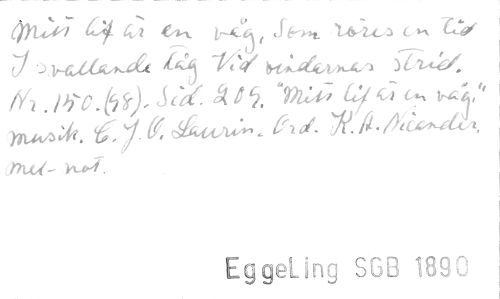 Mitt lif är en våg, Som röres en tid
I svallande tåg Vid vindarnas strid.
Nr. 150. (98). Sid. 209. "Mitt lif är en våg."
musik. C. J. O. Laurin. Ord. K. A. Nicander.
mel-not.
EggeLing SGB 1890